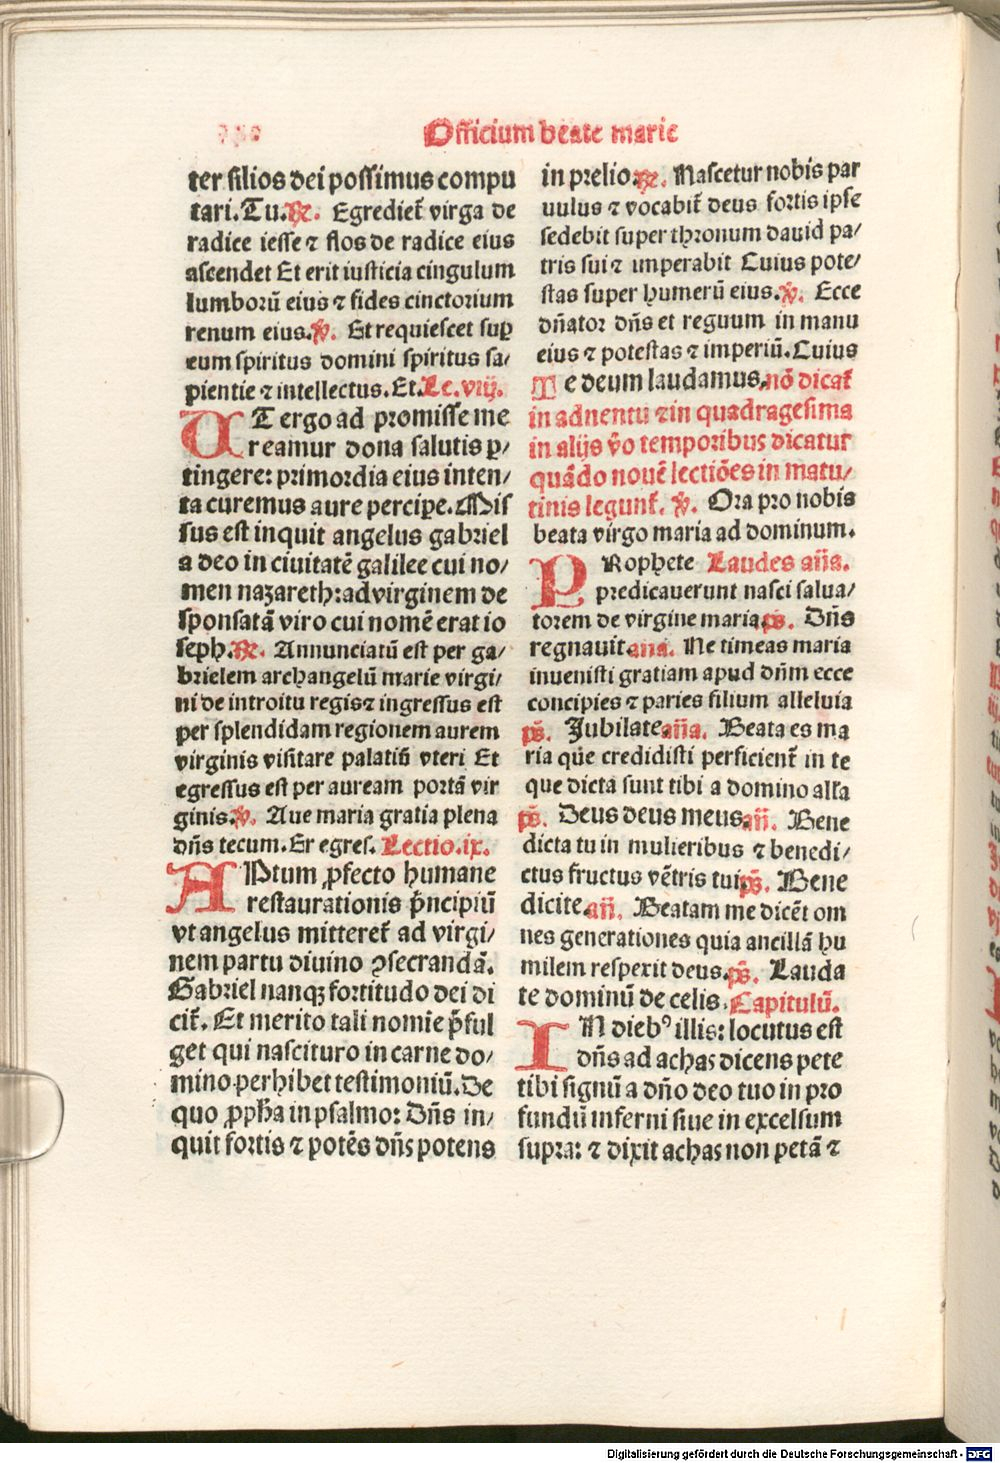 Officium beate marie
ter filios dei possimus compu
tari. Tu. ℟. Egrediet̃ virga de
radice iesse ⁊ flos de radice eius
ascendet Et erit iusticia cingulum
lumborũ eius ⁊ fides cinctorium
renum eius. ℣. Et requiescet suꝑ
eum spiritus domini spiritus sa/
pientie ⁊ intellectus. Et. Le. viij.
UT ergo ad promisse me
reamur dona salutis ꝑ/
tingere: primordia eius inten/
ta curemus aure percipe. Mis
sus est inquit angelus gabriel
a deo in ciuitatẽ galilee cui no/
men nazareth: ad virginem de
sponsatã viro cui nomẽ erat io
seph. ℟. Annunciatũ est per ga/
brielem archangelũ marie virgi/
ni de introitu regis ⁊ ingressus est
per splendidam regionem aurem
virginis visitare palatiũ vteri Et
egressus est per auream portã vir
ginis. ℣. Aue maria gratia plena
dñs tecum. Er egres. Lectio. ix.
APtum ꝓfecto humane
restaurationis p̃ncipiũ
vt angelus mitteret̃ ad virgi/
nem partu diuino ꝯsecrandã.
Gabriel nanqꝫ fortitudo dei di
cit̃. Et merito tali nomie p̃ful
get qui nascituro in carne do/
mino perhibet testimoniũ. De
quo ꝓpħa in psalmo: Dñs in/
quit fortis ⁊ potẽs dñs potens
in prelio. ℟. Nascetur nobis par
uulus ⁊ vocabit̃ deus fortis ipse
sedebit super thronum dauid pa/
tris sui ⁊ imperabit Cuius pote/
stas super humerũ eius. ℣. Ecce
dñator dñs et regnum in manu
eius ⁊ potestas ⁊ imperiũ. Cuius
Te deum laudamus. nõ dicat̃
in aduentu ⁊ in quadragesima
in alijs ṽo temporibus dicatur
quãdo nouẽ lectiões in matu/
tinis legunt̃. ℣. Ora pro nobis
beata virgo maria ad dominum.
PRophete Laudes aña.
predicauerunt nasci salua/
torem de virgine maria. p̃s. Dñs
regnauit ana. Ne timeas maria
inuenisti gratiam apud dñm ecce
concipies ⁊ paries filium alleluia
p̃s. Jubilate añа. Beata es ma
ria que credidisti perficient̃ in te
que dicta sunt tibi a domino alľa
p̃s. Deus deus meus. añ. Bene
dicta tu in mulieribus ⁊ benedi/
ctus fructus vẽtris tui. p̃s. Bene
dicite. añ. Beatam me dicẽt om
nes generationes quia ancillã hu
milem respexit deus. p̃s. Lauda
te dominũ de celis. Capitulũ.
IN diebꝰ illis: locutus est
dñs ad achas dicens pete
tibi signũ a dño deo tuo in pro
fundũ inferni siue in excelsum
supra: ⁊ dixit achas non petã ⁊
Digitalisierung gefördert durch die Deutsche Forschungsgemeinschaft - DFG